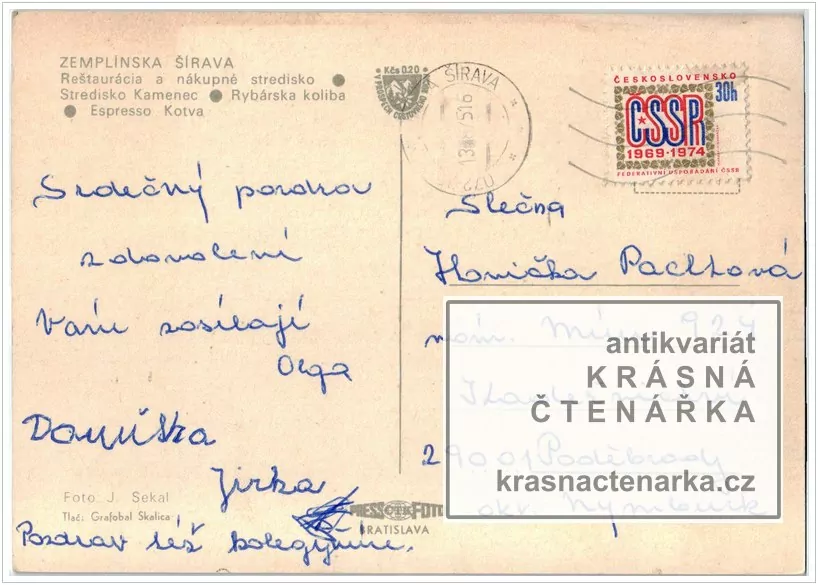 ZEMPLÍNSKA ŠÍRAVA
Reštaurácia a nákupné stredisko ●
Stredisko Kamenec ● Rybárska koliba
● Espresso Kotva
Kčs 0.20
ŠÍRAVA
ČESKOSLOVENSKO
30h
ČSSR
1969-1974
FEDERATIVNÍ USPOŘÁDÁNÍ ČSSR
Srdečný pozdrav
z dovolení
Vám zasílají
Olga
Danuška
Jirka
Pozdrav též kolegyním.
Slečna
Pachtová
nám. Míru
29001 Poděbrady
okr. Nymburk
antikvariát
KRÁSNÁ
ČTENÁŘKA
krasnactenarka.cz
Foto J. Sekal
Tlač: Grafobal Skalica
PRESSFOTO
BRATISLAVA